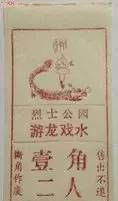 烈士公园
游龙戏水
壹角
二人
撕角作废
售出不退